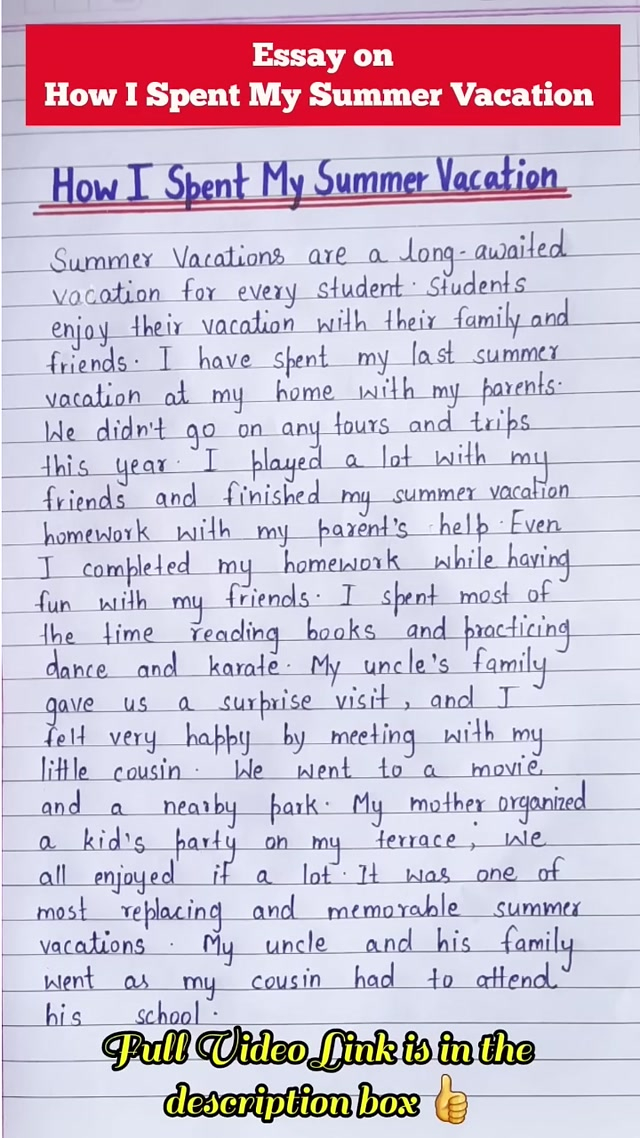 Essay on
How I Spent My Summer Vacation
How I Spent My Summer Vacation
Summer Vacations are a long-awaited
vacation for every student. Students
enjoy their vacation with their family and
friends. I have spent my last summer
vacation at my home with my parents.
We didn't go on any tours and trips
this year. I played a lot with my
friends and finished my summer vacation
homework with my parent's help. Even
I completed my homework while having
fun with my friends. I spent most of
the time reading books and practicing
dance and karate. My uncle's family
gave us a surprise visit, and I
felt very happy by meeting with my
little cousin. We went to a movie,
and a nearby park. My mother organized
a kid's party on my terrace; we
all enjoyed it a lot. It was one of
most replacing and memorable summer
vacations. My uncle and his family
went as my cousin had to attend
his school.
Full Video Link is in the
description box 👍